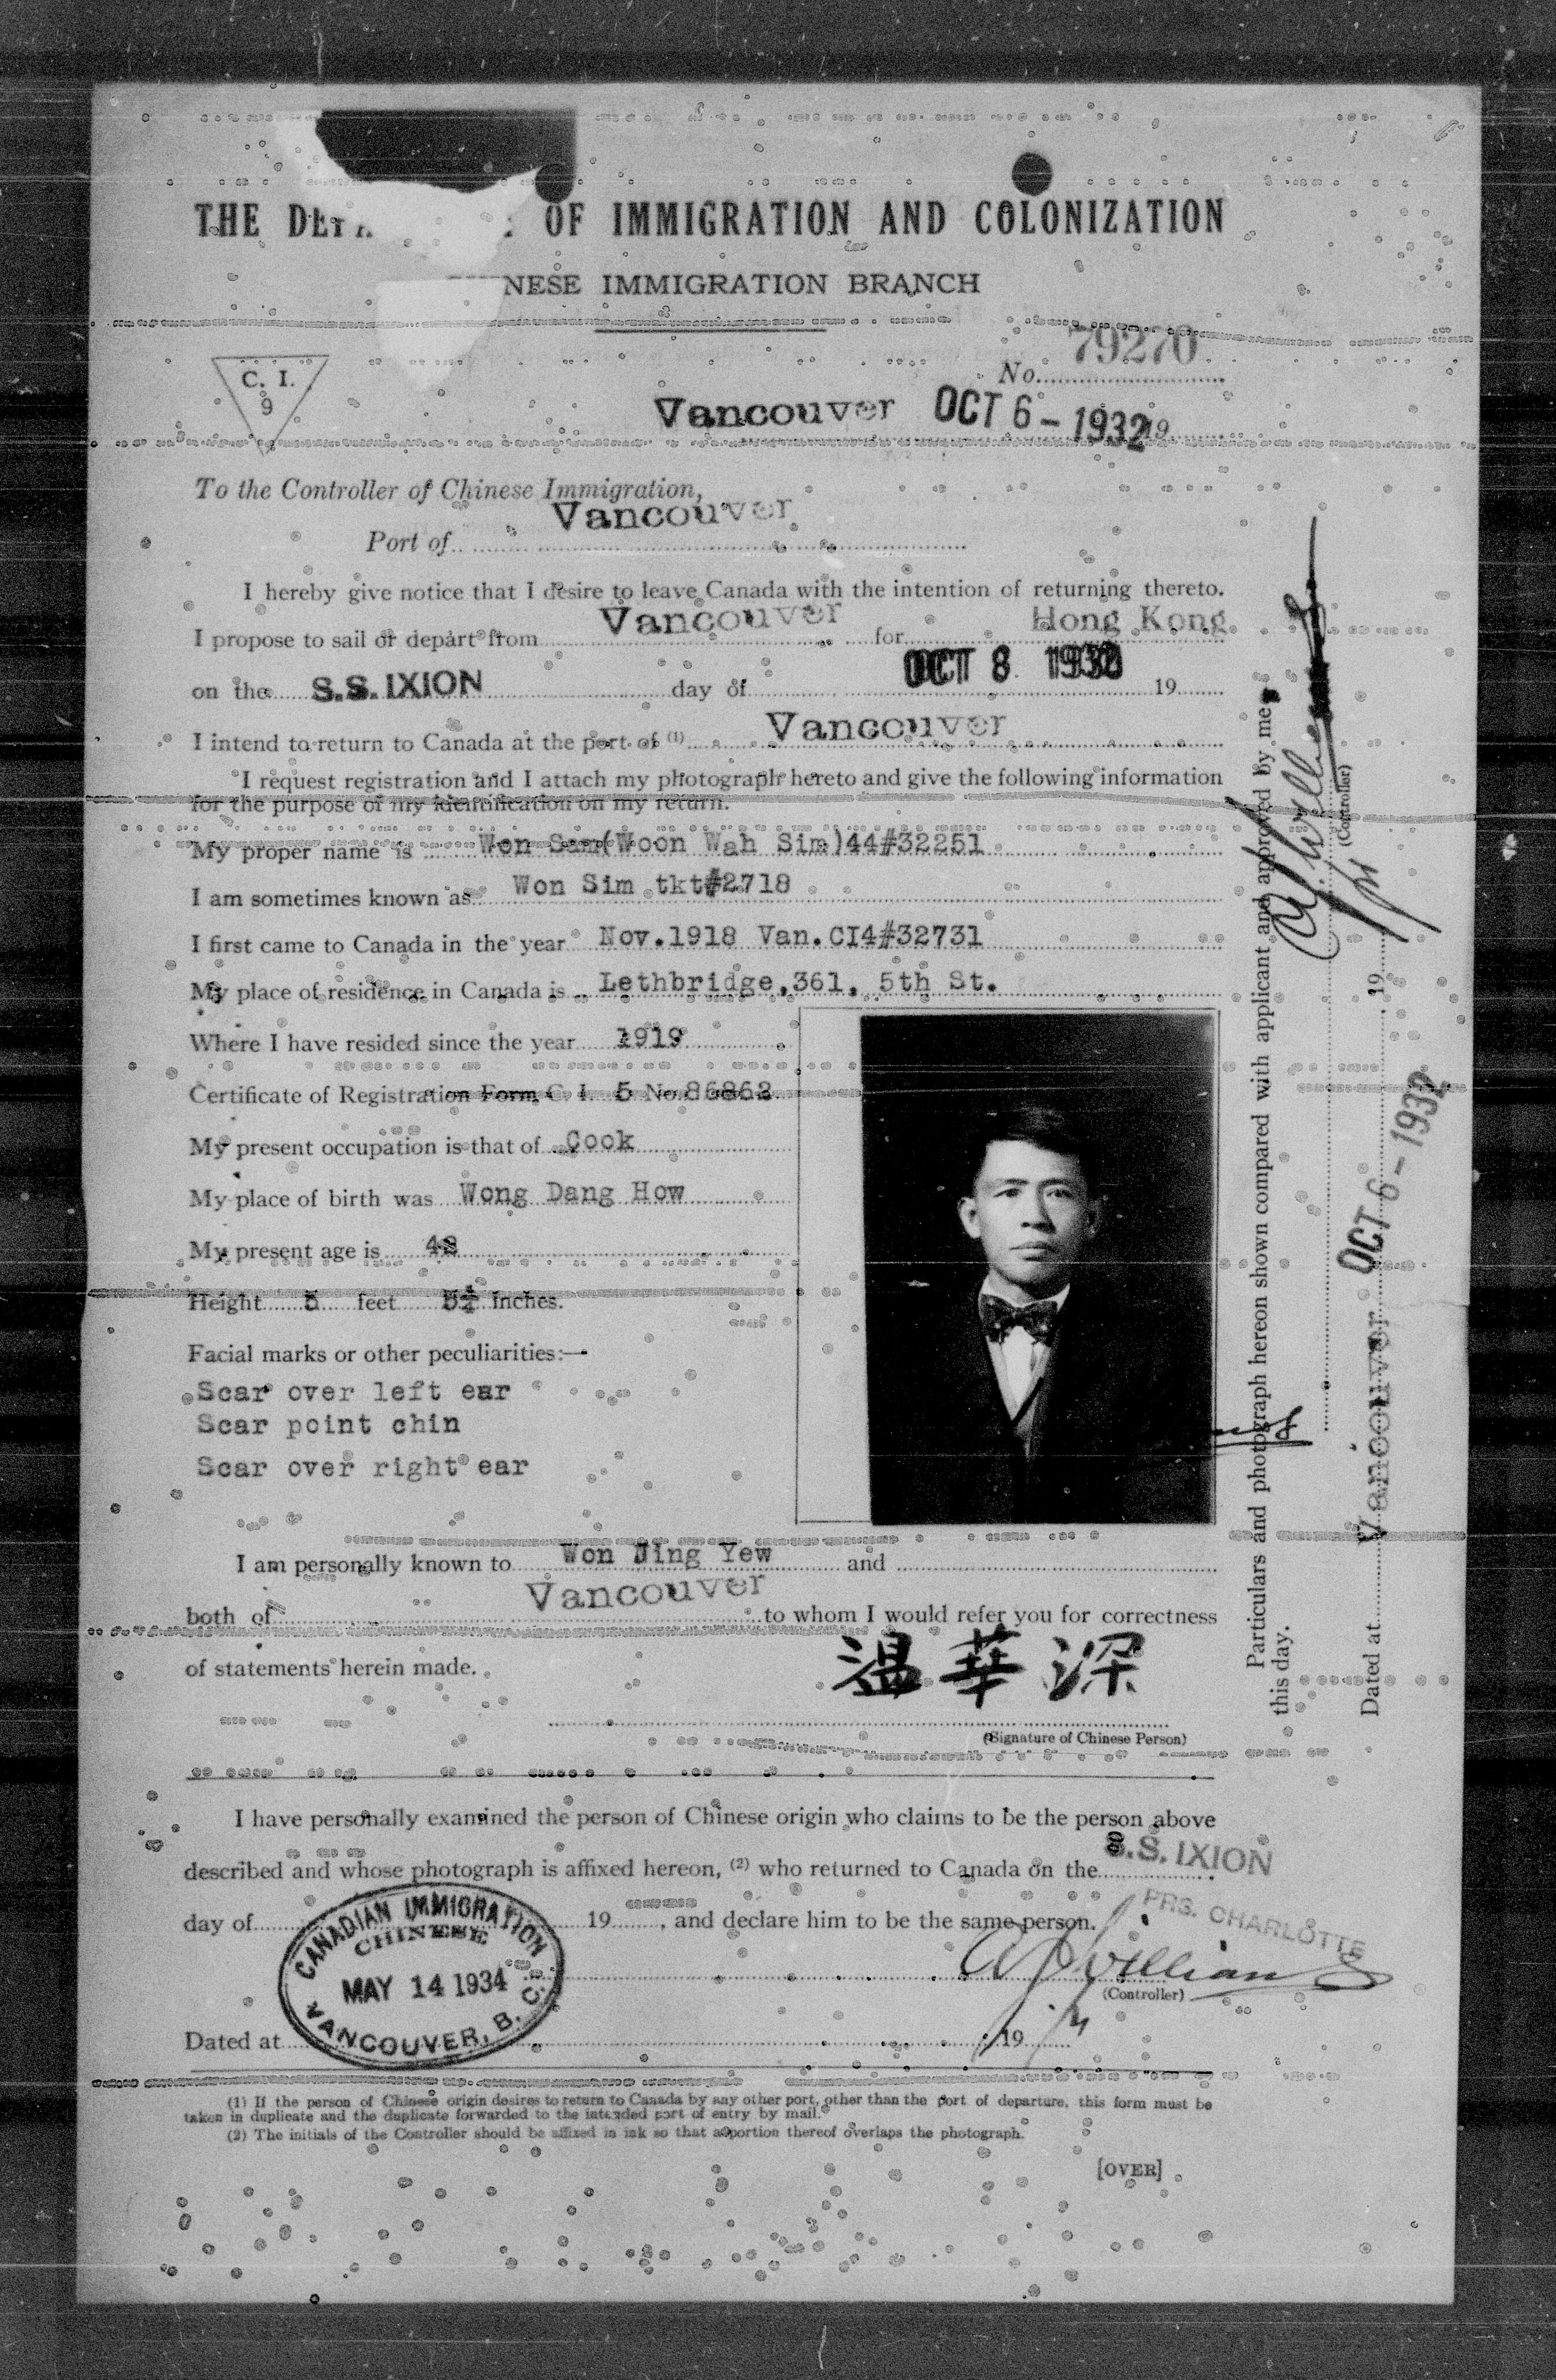 THE OF IMMIGRATION AND COLONIZATION
NESE IMMIGRATION BRANCH
C. I.
9
No. 79270
Vancouver OCT 6 - 1932 19
To the Controller of Chinese Immigration,
Port of Vancouver
I hereby give notice that I desire to leave Canada with the intention of returning thereto.
I propose to sail or depart from Vancouver for Hong Kong
on the S.S. IXION day of OCT 8 19
I intend to return to Canada at the port of (1) Vancouver
I request registration and I attach my photograph hereto and give the following information
for the purpose of my identification on my return.
My proper name is Won Sam(Woon Wah Sim)44#32251
I am sometimes known as Won Sim tkt#2718
I first came to Canada in the year Nov.1918 Van.CI4#32731
My place of residence in Canada is Lethbridge,361, 5th St.
Where I have resided since the year 1919
Certificate of Registration Form C. I. 5 No.86862
My present occupation is that of Cook
My place of birth was Wong Dang How
My present age is 48
Height 5 feet 5½ inches.
Facial marks or other peculiarities:—
Scar over left ear
Scar point chin
Scar over right ear
I am personally known to Won Jing Yew and
both of Vancouver to whom I would refer you for correctness
of statements herein made.
溫華深
(Signature of Chinese Person)
I have personally examined the person of Chinese origin who claims to be the person above
described and whose photograph is affixed hereon, (2) who returned to Canada on the S.S. IXION
day of 19 , and declare him to be the same person.
PRS. CHARLOTTE
(Controller)
CANADIAN IMMIGRATION
CHINESE
MAY 14 1934
VANCOUVER, B. C.
Dated at 19
(1) If the person of Chinese origin desires to return to Canada by any other port, other than the port of departure, this form must be
taken in duplicate and the duplicate forwarded to the intended port of entry by mail.
(2) The initials of the Controller should be affixed in ink so that a portion thereof overlaps the photograph.
[OVER]
Particulars and photograph hereon shown compared with applicant and approved by me
this day.
(Controller)
Dated at Vancouver OCT 6 - 1932 19